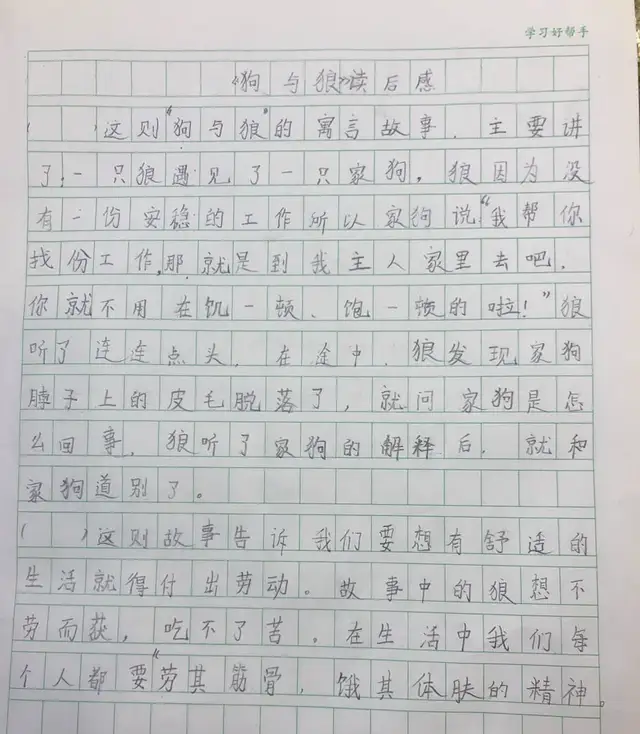 学习好帮手
《狗与狼》读后感
( )这则“狗与狼”的寓言故事，主要讲
了：一只狼遇见了一只家狗，狼因为没
有一份安稳的工作所以家狗说“我帮你
找份工作，那就是到我主人家里去吧，
你就不用在饥一顿、饱一顿的啦！”狼
听了连连点头，在途中，狼发现家狗
脖子上的皮毛脱落了，就问家狗是怎
么回事，狼听了家狗的解释后，就和
家狗道别了。
( )这则故事告诉我们要想有舒适的
生活就得付出劳动。故事中的狼想不
劳而获，吃不了苦。在生活中我们每
个人都要“劳其筋骨，饿其体肤的精神。